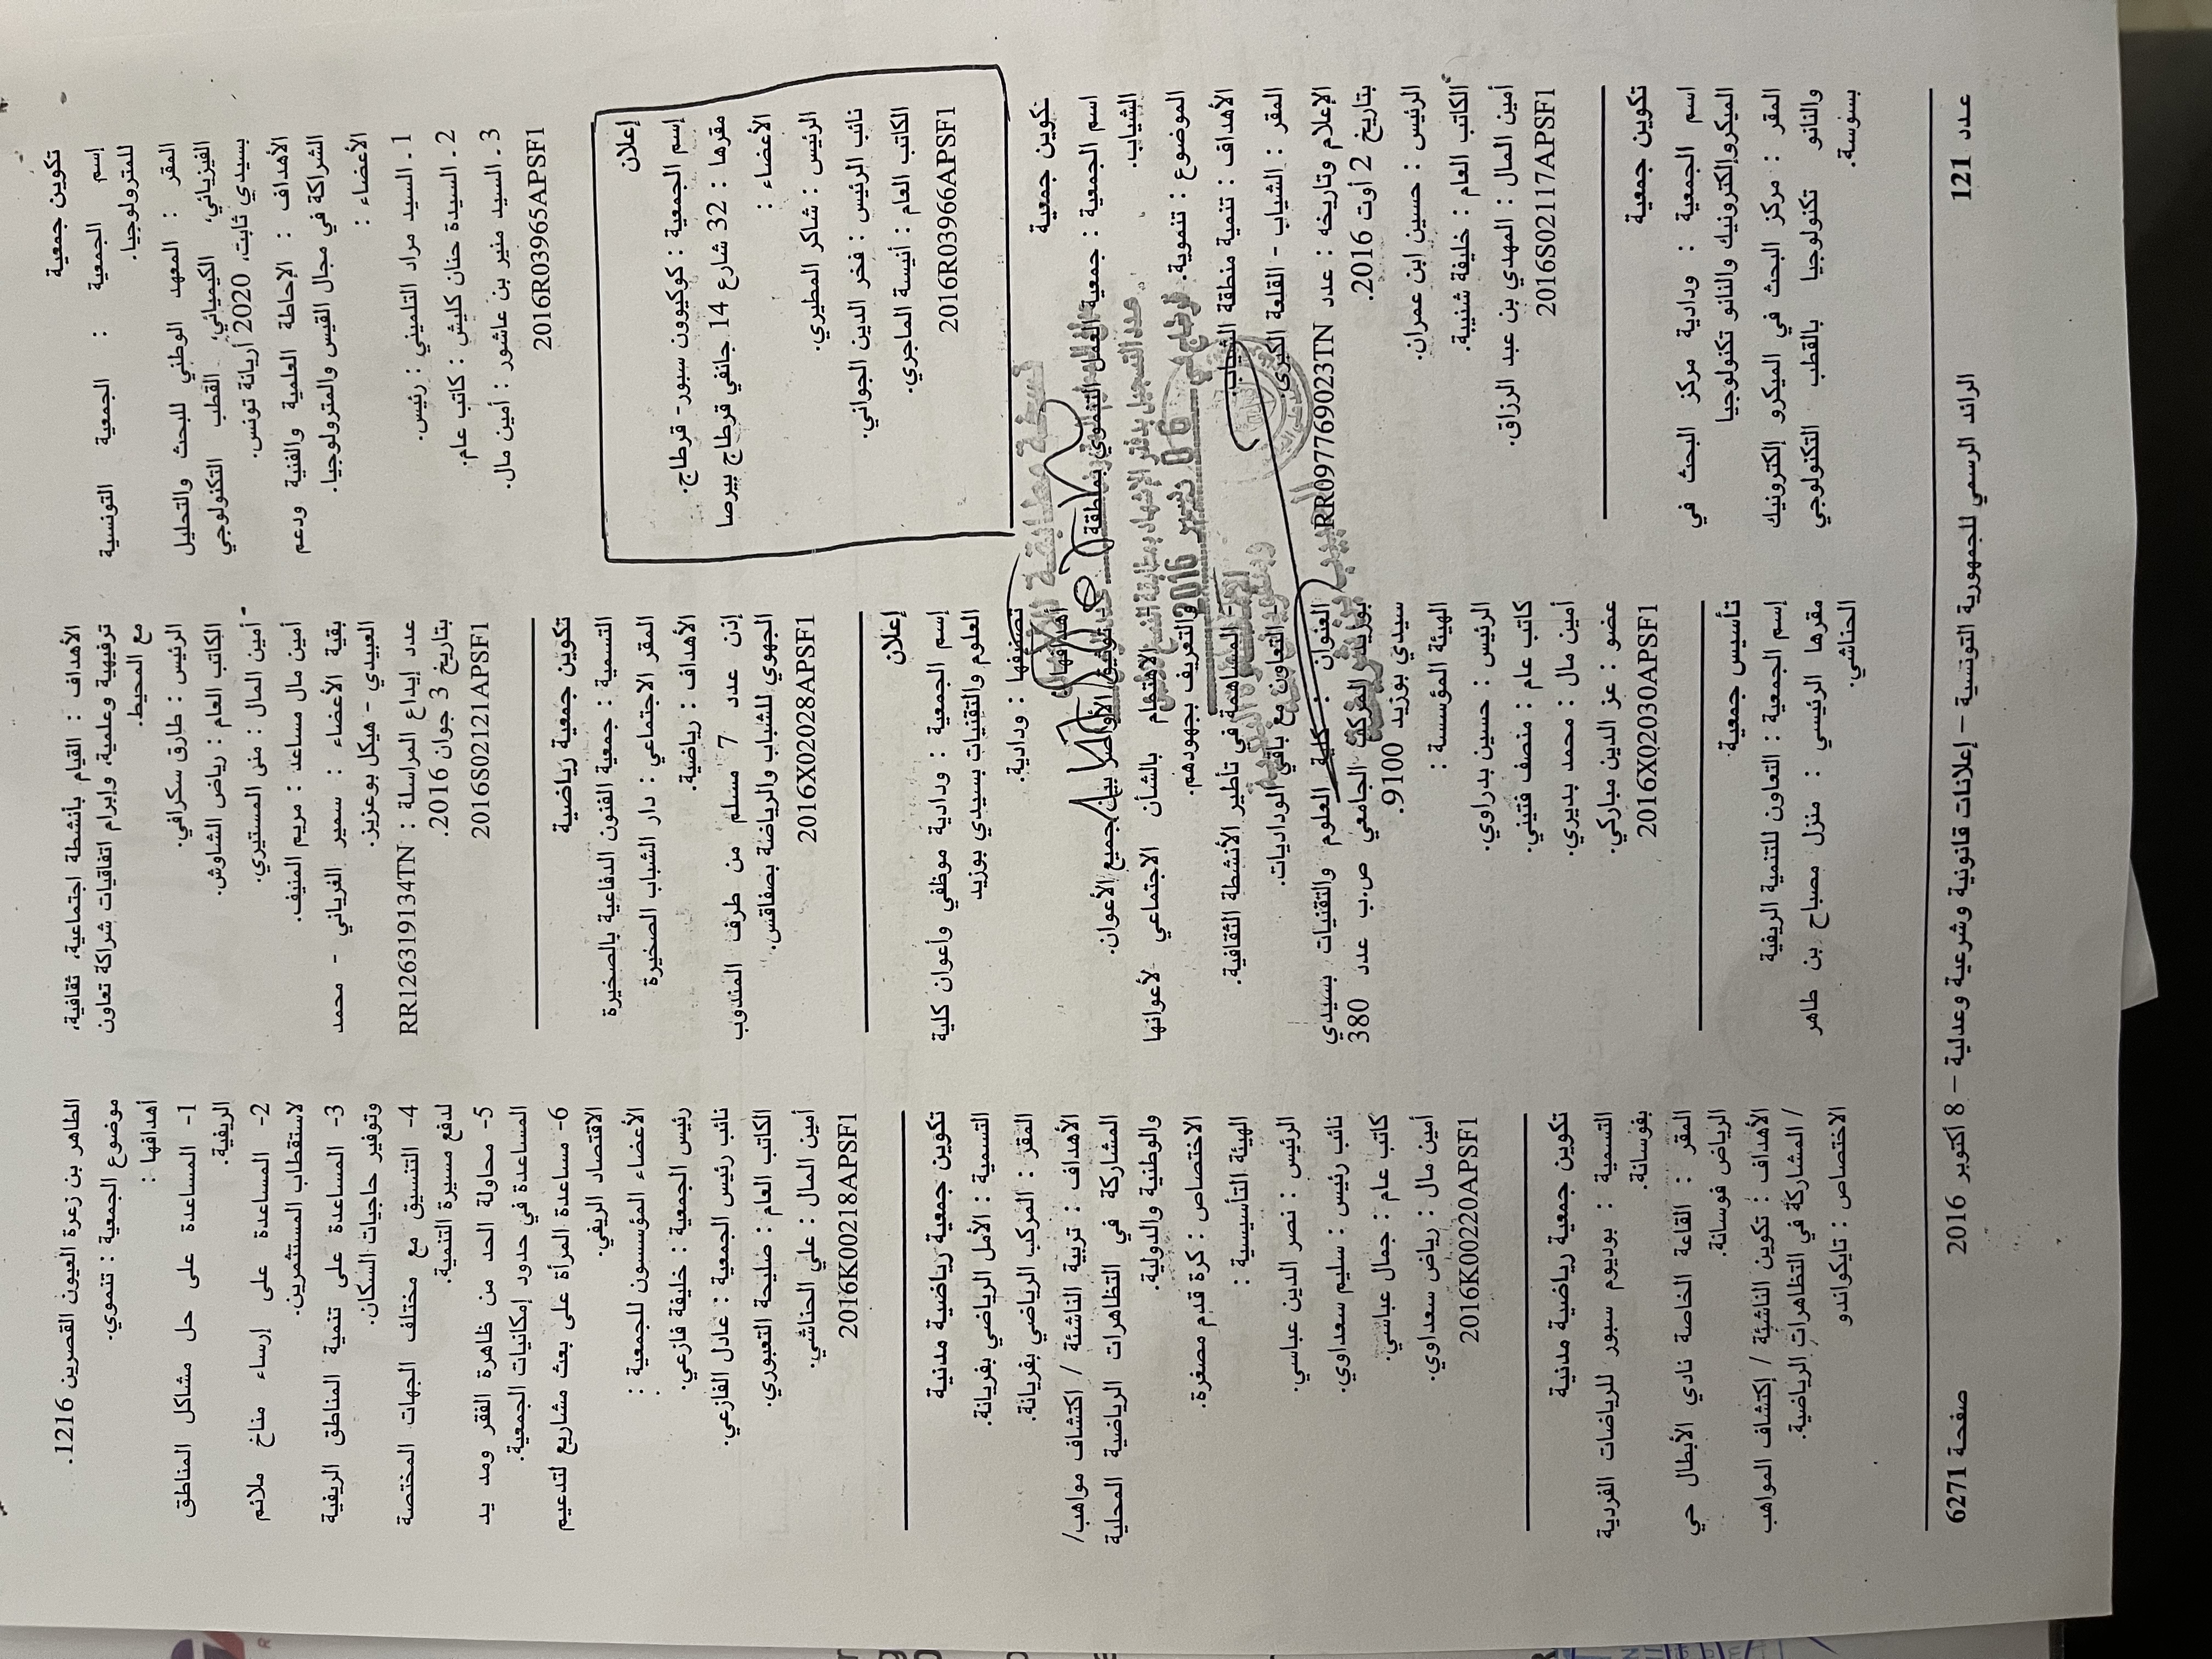 تكوين جمعية
إسم الجمعية : الجمعية التونسية
للمترولوجيا.
المقر : المعهد الوطني للبحث والتحليل
الفيزيائي، الكيميائي، القطب التكنولوجي
بسيدي ثابت، 2020 أريانة تونس.
الأهداف : الإحاطة العلمية والفنية ودعم
الشراكة في مجال القيس والمترولوجيا.
الأعضاء :
1 ـ السيد مراد التلميني : رئيس.
2 ـ السيدة حنان كليش : كاتب عام.
3 ـ السيد منير بن عاشور : أمين مال.
2016R03965APSF1
إعلان
إسم الجمعية : كوكيوون سبور- قرطاج.
مقرها : 32 شارع 14 جانفي قرطاج بيرصا
الأعضاء :
الرئيس : شاكر المطيري.
نائب الرئيس : فخر الدين الجواني.
الكاتب العام : أنيسة الماجري.
2016R03966APSF1
تكوين جمعية
اسم الجمعية : جمعية العمل التنموي بمنطقة
الشياب.
الموضوع : تنموية.
الأهداف : تنمية منطقة الشياب.
المقر : الشياب - القلعة الكبرى.
الإعلام وتاريخه : عدد RR097769023TN
بتاريخ 2 أوت 2016.
الرئيس : حسين ابن عمران.
الكاتب العام : خليفة شنيبة.
أمين المال : المهدي بن عبد الرزاق.
2016S02117APSF1
تكوين جمعية
اسم الجمعية : ودادية مركز البحث في
الميكروإلكترونيك والنانو تكنولوجيا
المقر : مركز البحث في الميكرو إلكترونيك
والنانو تكنولوجيا بالقطب التكنولوجي
بسوسة.
الأهداف : القيام بأنشطة اجتماعية، ثقافية،
ترفيهية وعلمية، وابرام اتفاقيات شراكة تعاون
مع المحيط.
الرئيس : طارق سكرافي.
الكاتب العام : رياض الشاوش.
أمين المال : منى المستيري.
أمين مال مساعد : مريم المنيف.
بقية الأعضاء : سمير الفرياني - محمد
العبيدي - هيكل بوعزيز.
عدد إيداع المراسلة : RR126319134TN
بتاريخ 3 جوان 2016.
2016S02121APSF1
تكوين جمعية رياضية
التسمية : جمعية الفنون الدفاعية بالصخيرة
المقر الاجتماعي : دار الشباب الصخيرة
الأهداف : رياضية.
إذن عدد 7 مسلم من طرف المندوب
الجهوي للشباب والرياضة بصفاقس.
2016X02028APSF1
إعلان
إسم الجمعية : ودادية موظفي وأعوان كلية
العلوم والتقنيات بسيدي بوزيد
تصنيفها : ودادية.
أهدافها :
- توثيق الأواصر بين جميع الأعوان.
- الاهتمام بالشأن الاجتماعي لأعوانها
والتعريف بجهودهم.
- المساهمة في تأطير الأنشطة الثقافية.
- التعاون مع باقي الوداديات.
العنوان : كلية العلوم والتقنيات بسيدي
بوزيد المركب الجامعي ص.ب عدد 380
سيدي بوزيد 9100.
الهيئة المؤسسة :
الرئيس : حسين بدراوي.
كاتب عام : منصف فتيني.
أمين مال : محمد بديري.
عضو : عز الدين مباركي.
2016X02030APSF1
تأسيس جمعية
إسم الجمعية : التعاون للتنمية الريفية
مقرها الرئيسي : منزل مصباح بن طاهر
الحناشي.
الطاهر بن زعرة العيون القصرين 1216.
موضوع الجمعية : تنموي.
أهدافها :
1- المساعدة على حل مشاكل المناطق
الريفية.
2- المساعدة على إرساء مناخ ملائم
لاستقطاب المستثمرين.
3- المساعدة على تنمية المناطق الريفية
وتوفير حاجيات السكان.
4- التنسيق مع مختلف الجهات المختصة
لدفع مسيرة التنمية.
5- محاولة الحد من ظاهرة الفقر ومد يد
المساعدة في حدود إمكانيات الجمعية.
6- مساعدة المرأة على بعث مشاريع لتدعيم
الاقتصاد الريفي.
الأعضاء المؤسسون للجمعية :
رئيس الجمعية : خليفة فازعي.
نائب رئيس الجمعية : عادل الفازعي.
الكاتب العام : صليحة التعبوري.
أمين المال : علي الحناشي.
2016K00218APSF1
تكوين جمعية رياضية مدنية
التسمية : الأمل الرياضي بفريانة.
المقر : المركب الرياضي بفريانة.
الأهداف : تربية الناشئة / اكتشاف مواهب/
المشاركة في التظاهرات الرياضية المحلية
والوطنية والدولية.
الاختصاص : كرة قدم مصغرة.
الهيئة التأسيسية :
الرئيس : نصر الدين عباسي.
نائب رئيس : سليم سعداوي.
كاتب عام : جمال عباسي.
أمين مال : رياض سعداوي.
2016K00220APSF1
تكوين جمعية رياضية مدنية
التسمية : بوديوم سبور للرياضات الفردية
بفوسانة.
المقر : القاعة الخاصة نادي الأبطال حي
الرياض فوسانة.
الأهداف : تكوين الناشئة / إكتشاف المواهب
/ المشاركة في التظاهرات الرياضية.
الاختصاص : تايكواندو
عدد 121
الرائد الرسمي للجمهورية التونسية – إعلانات قانونية وشرعية وعدلية – 8 أكتوبر 2016
صفحة 6271